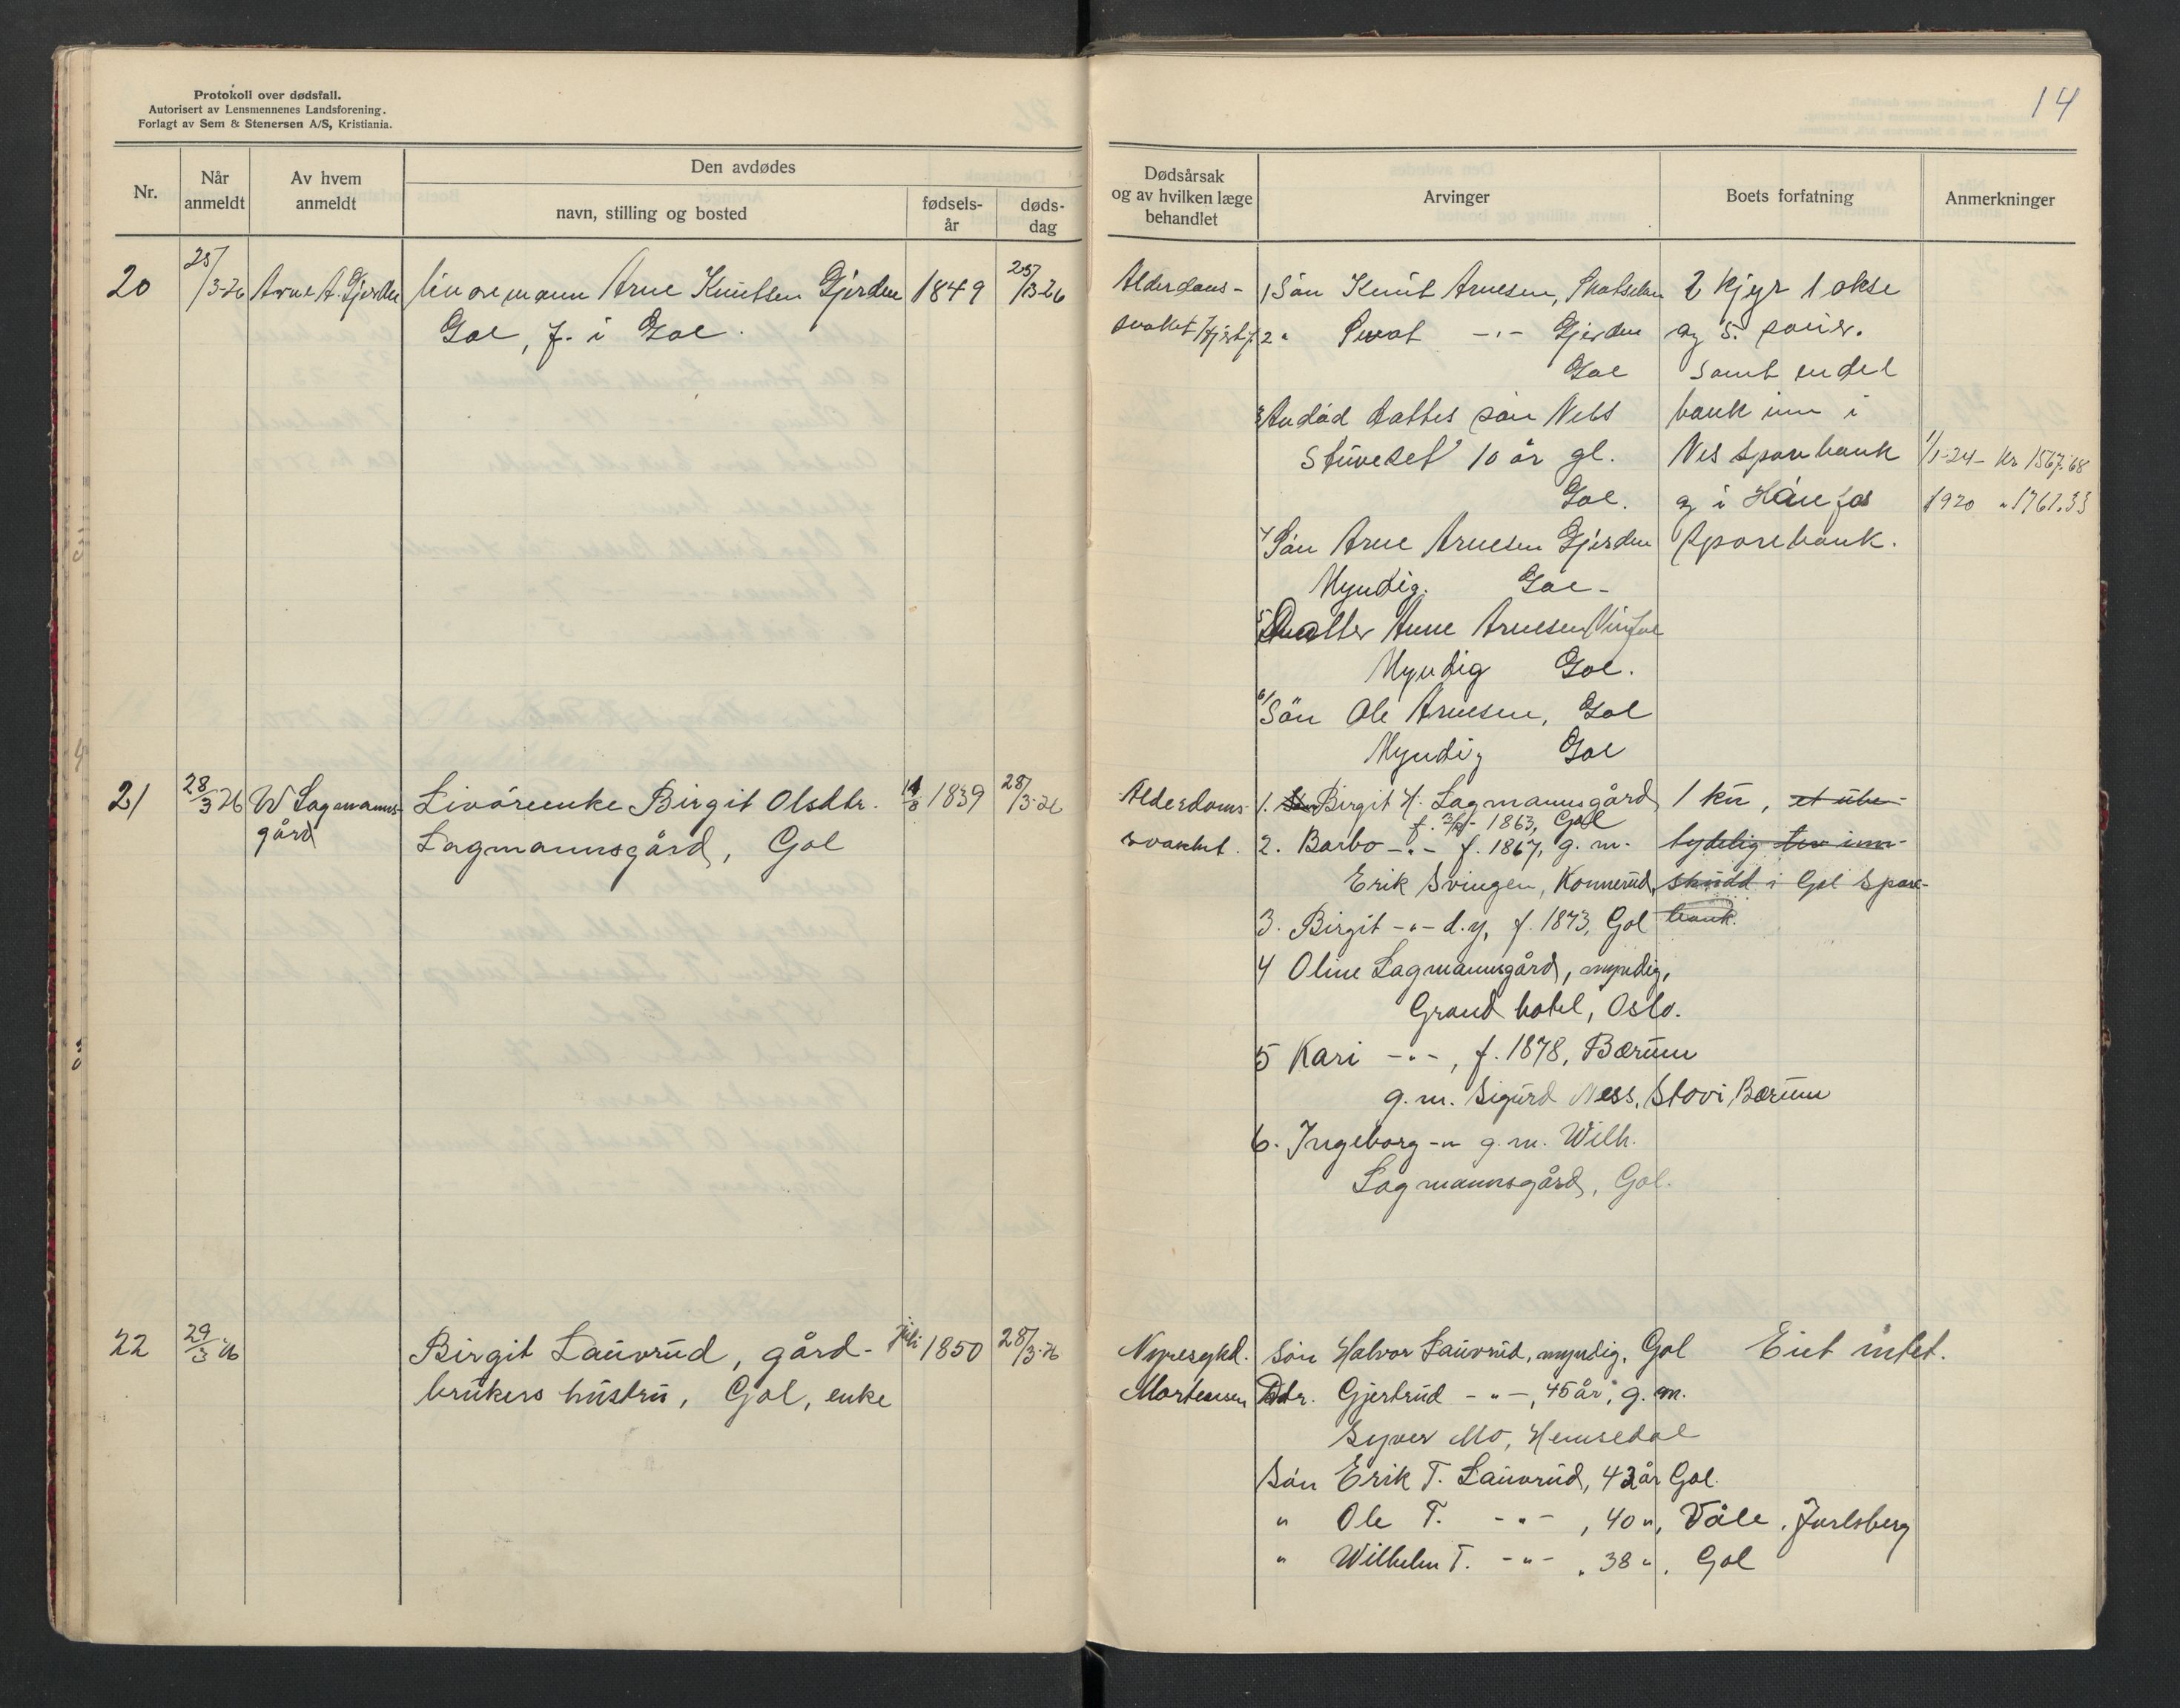 Protokoll over dødsfall.
Autorisert av Lensmennenes Landsforening.
Forlagt av Sem & Stenersen A/S, Kristiania.
14
Nr.
Når anmeldt
Av hvem anmeldt
Den avdødes
navn, stilling og bosted
fødsels-år
døds-dag
Dødsårsak og av hvilken læge behandlet
Arvinger
Boets forfatning
Anmerkninger
20
25/3-26
Arne A. Gjerden
Livøremann Arne Knutsen Gjerden
Gol, f. i Gol.
1849
25/3-26
Alderdoms-
svakhet
1 Søn Knut Arnesen,
2 " -"- Gjerden
Gol
3 Avdød datters søn Nels
10 år gl.
Gol.
4 Søn Arne Arnesen Gjerden
Myndig. Gol-
5 Datter Anne Arnesen
Myndig Gol.
6/ Søn Ole Arnesen, Gol
Myndig Gol
2 kjyr 1 okse
og 5 sauer.
Samt en del
bank inn i
Nes Sparebank
og i Hønefos
Sparebank.
1/1-24- kr 1567.68
1920 " 1761.33
21
28/3 26
W Lagmanns-
gård
Livøreenke Birgit Olsdtr.
Lagmannsgård, Gol
1839
28/3-26
Alderdoms-
svakhet.
1. Birgit H. Lagmannsgård
1863, Gol
2. Barbo -"- f. 1867, g. m.
Erik Svingen, Konnerud,
3. Birgit -"- d.y, f. 1873, Gol
4 Oline Lagmannsgård, myndig,
Grand hotel, Oslo.
5 Kari -"-, f. 1878, Bærum
g.m. Sigurd Ness, Stovi Bærum
6. Ingeborg -"- g.m. Wilh.
Lagmannsgård, Gol.
1 ku, et ube-
tydelig inn-
skudd i Gol Spare-
bank.
22
29/3 26
Birgit Lauvrud, gård-
brukers hustru, Gol, enke
juli 1850
28/3-26
Nyresykd.
Mortensen
Søn Halvor Lauvrud, myndig, Gol
Dtr. Gjertrud -"-, 45 år, g. m.
Syver Mo, Hemsedal
Søn Erik T. Lauvrud, 42 år Gol.
" Ole T. -"-, 40 ", Våle, Jarlsberg
" Wilhelm T. -"-, 38 ", Gol
Eiet intet.